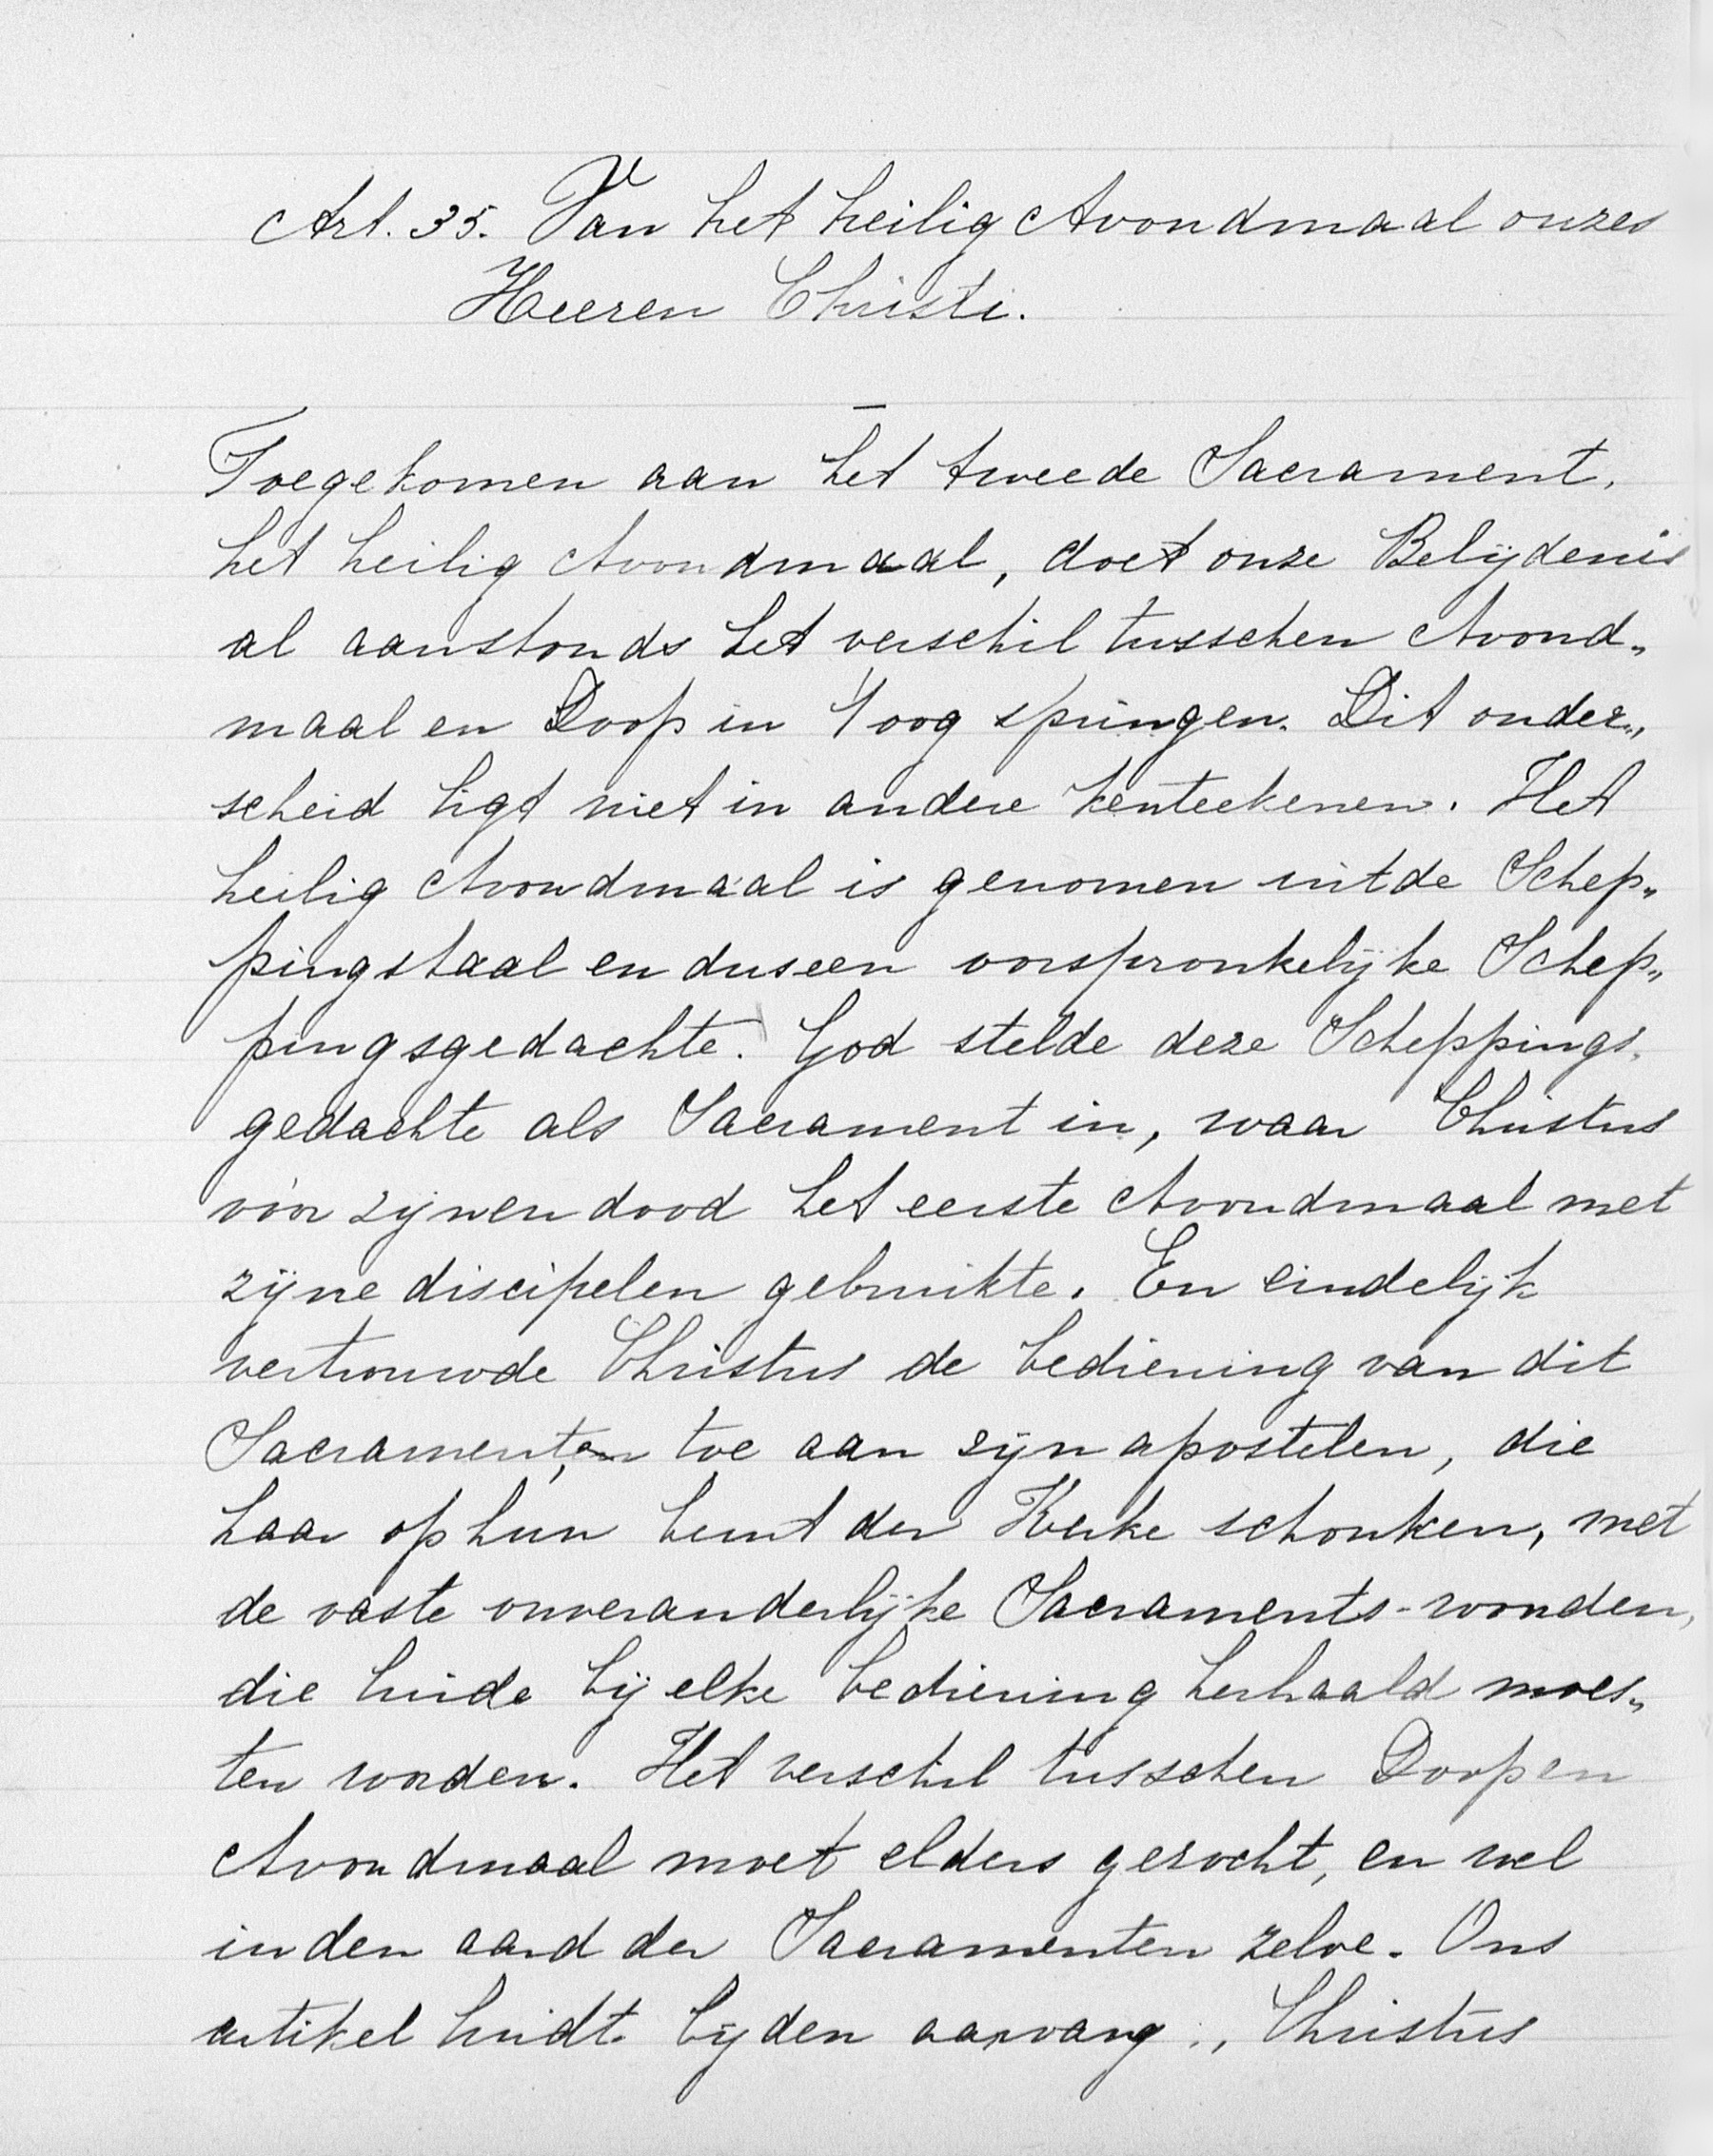 Art. 35. Van het heilig Avondmaal onzes
Heeren Christi.
Toegekomen aan het tweede Sacrament,
het heilig Avondmaal, doet onze Belijdenis
al aanstonds het verschil tusschen Avond„
maal en Doop in 't oog springen. Dit onder„
scheid ligt niet in andere kenteekenen. Het
heilig Avondmaal is genomen uit de Schep„
pingstaal en dus een oorspronkelijke Schep„
pingsgedachte. God stelde deze Scheppings„
gedachte als Sacrament in, waar Christus
vóór zijnen dood het eerste Avondmaal met
zijne discipelen gebruikte. En eindelijk
vertrouwde Christus de bediening van dit
Sacrament, toe aan zijn apostelen, die
haar op hun beurt der Kerke schonken, met
de vaste onveranderlijke Sacraments-woorden,
die luide bij elke bediening herhaald moes„
ten worden. Het verschil tusschen Doop en
Avondmaal moet elders gezocht, en wel
in den aard der Sacramenten zelve. Ons
artikel luidt bij den aanvang: „Christus